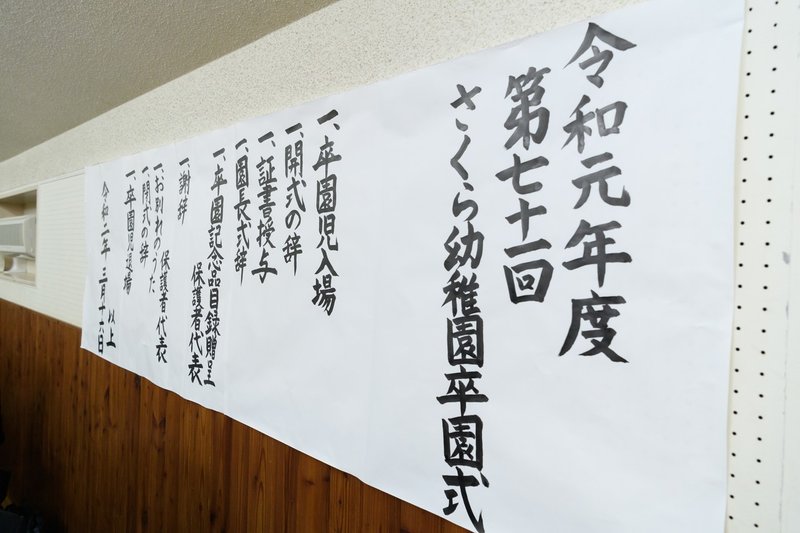 令和元年度
第七十一回
さくら幼稚園卒園式
一、卒園児入場
一、開式の辞
一、証書授与
一、園長式辞
一、卒園記念品目録贈呈
保護者代表
一、謝辞
保護者代表
一、お別れのうた
一、閉式の辞
一、卒園児退場
以上
令和二年 三月十六日